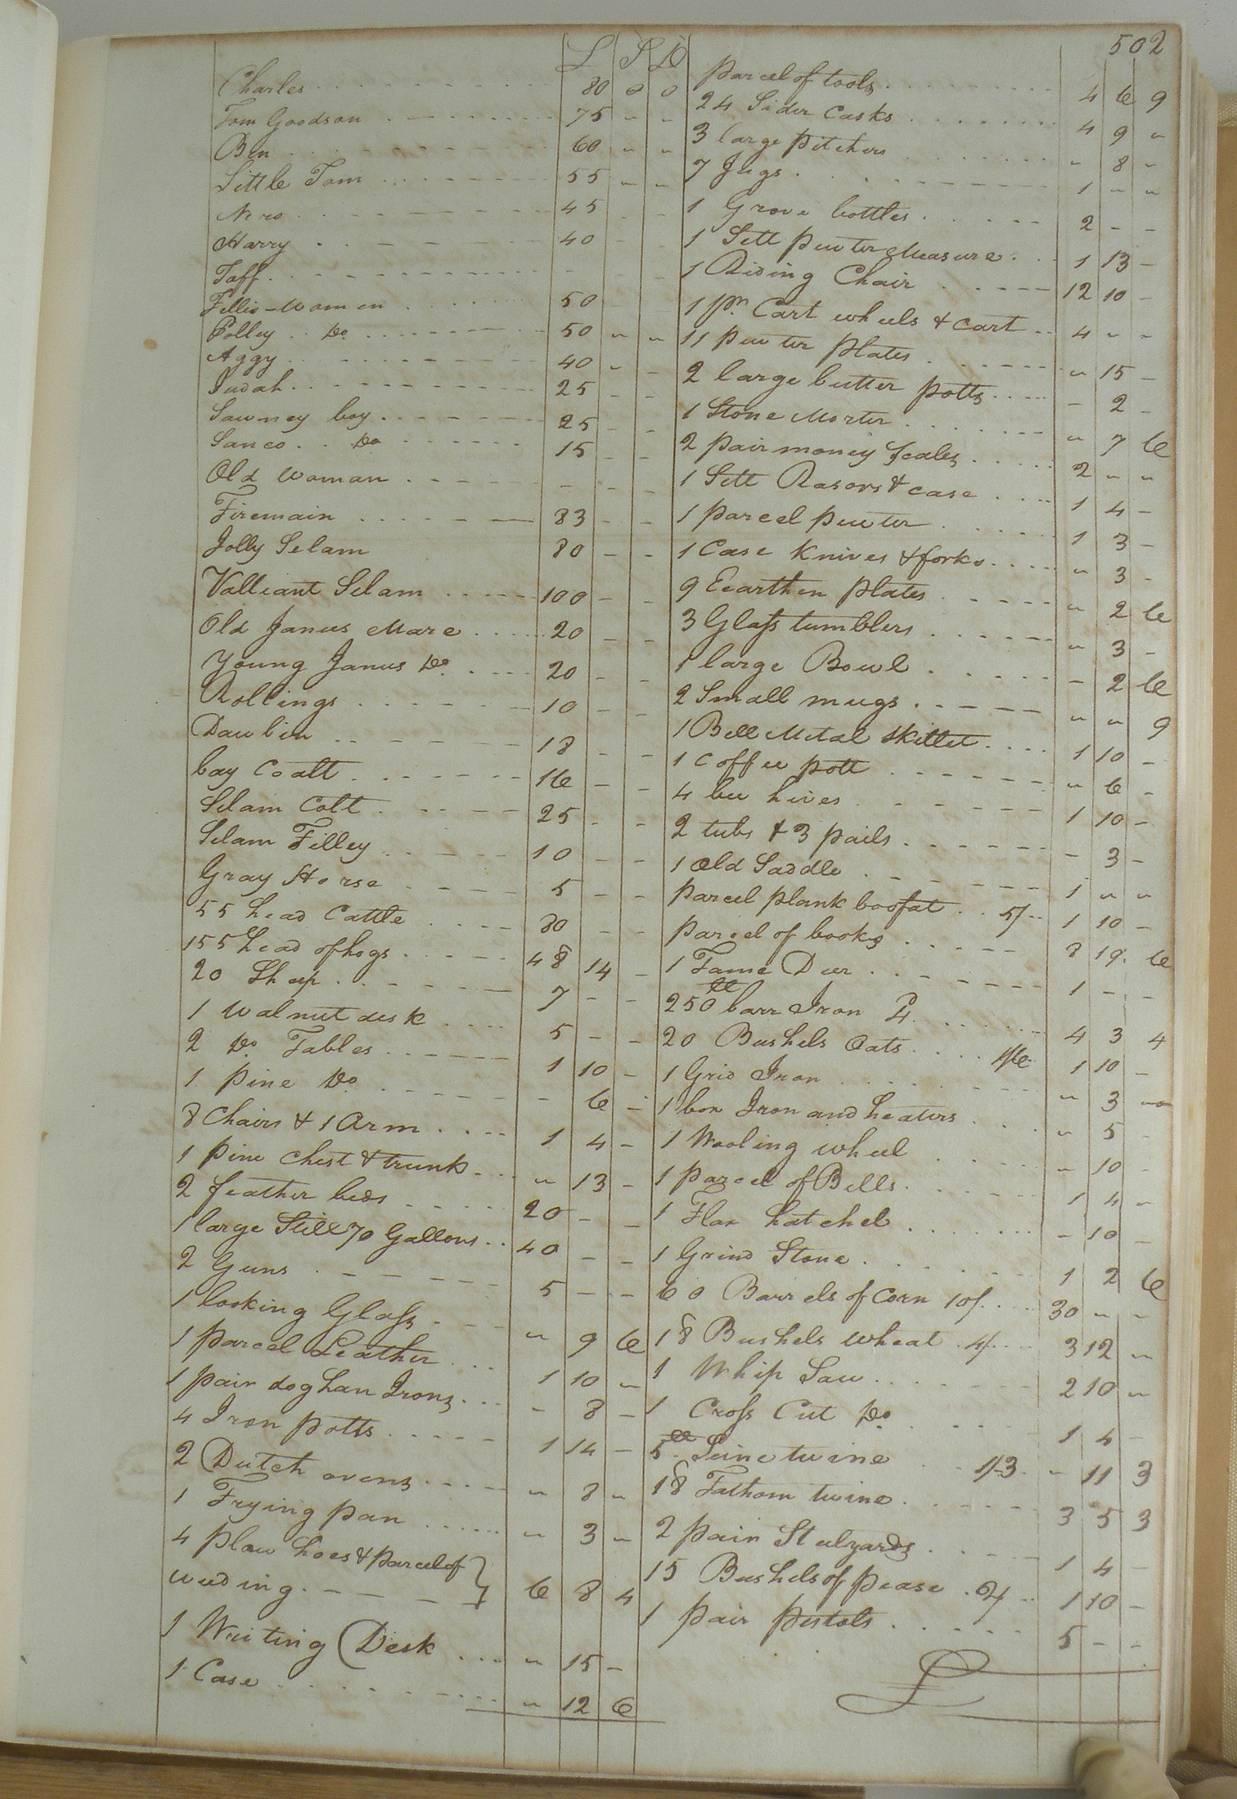 502
L S D
Charles 80 0 0
Tom Goodson 75 " "
Ben 60 " "
Little Tom 55 " "
Nero 45 - -
Harry 40 - -
Taff - - -
Fillis - women 50 - -
Polley Do 50 " "
Aggy 40 " -
Judah 25 - -
Sawney boy 25 - -
Sanco Do 15 - -
Old woman - - -
Firemain 83 - -
Jolly Selam 80 - -
Valleant Selam 100 - -
Old Janus Mare 20 - -
Young Janus Do 20 - -
Rollings 10 - -
Dawbin 18 - -
bay Coalt 16 - -
Selam Colt 25 - -
Selam Filley 10 - -
Gray Horse 5 - -
55 head Cattle 80 - -
155 head of hogs 48 14 -
20 Sheep 7 - -
1 walnut desk 5 - -
2 Do Tables 1 10 -
1 pine Do - 6 -
8 Chairs & 1 Arm 1 4 -
1 pine chest & trunk " 13 -
2 feather beds 20 - -
1 large Still 70 Gallons 40 - -
2 Guns 5 - -
1 looking Glass " 9 6
1 parcel Leather 1 10 "
1 pair dog han Irons - 8 -
4 Iron potts 1 14 -
2 Dutch ovens " 8 "
1 Frying pan " 3 "
4 plow hoes & parcel of
weeding 6 8 4
1 Writing Desk " 15 -
1 Case " 12 6
parcel of tools 4 6 9
24 Sider Casks 4 9 "
3 large pitchers " 8 "
7 Jugs 1 " "
1 Grove bottles 2 - -
1 Sett pewter Measure 1 13 -
1 Riding Chair 12 10 -
1 pr. Cart wheels & cart 4 " "
11 pewter plates " 15 -
2 large butter potts - 2 -
1 Stone Morter " 7 6
2 pair money scales 2 " "
1 Sett Rasors & case 1 4 -
1 parcel pewter 1 3 -
1 Case Knives & forks " 3 -
9 Eearthen plates " 2 6
3 Glass tumblers " 3 -
1 large Bowl - 2 6
2 Small mugs " " 9
1 Bell Metal skillet 1 10 -
1 Coffee pott " 6 -
4 bee hives 1 10 -
2 tubs & 3 pails - 3 -
1 Old Saddle 1 " "
parcel plank boofat 5/ 1 10 -
parcel of books 8 19 6
1 Tame Deer 1 - -
250 lb barr Iron 4 4 3 4
20 Bushels Oats 1/6 1 10 -
1 Grid Iron " 3 -
1 box Iron and heaters " 5 -
1 Wooling wheel " 10 -
1 parcel of Bells 1 4 -
1 Flax hatchel - 10 -
1 Grind Stone 1 2 6
60 Barrels of Corn 10/ 30 " "
18 Bushels wheat 4/ 3 12 "
1 Whip Saw 2 10 "
1 Cross Cut Do 1 4 -
5 lb Seine twine 1/3 - 11 3
18 Fathom twine 3 5 3
2 pair Stulyards 1 4 -
15 Bushels of pease 2/ 1 10 -
1 pair pistols 5 - -